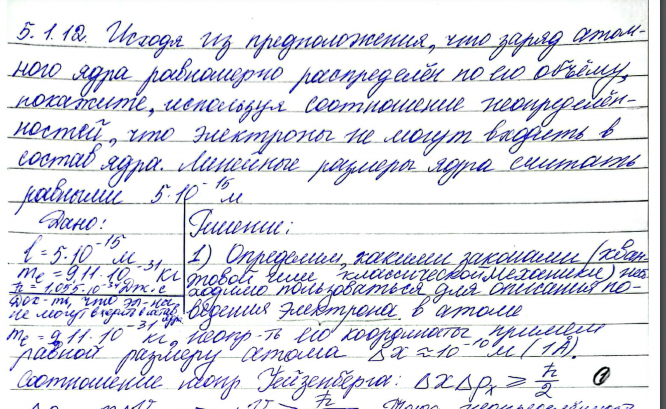 5.1.12. Исходя из предположения, что заряд атом-
ного ядра равномерно распределён по его объёму,
покажите, используя соотношение неопределён-
ностей, что электроны не могут входить в
состав ядра. Линейные размеры ядра считать
равными 5·10⁻¹⁵ м
Дано:
l = 5·10⁻¹⁵ м
mₑ = 9,11·10⁻³¹ кг
ħ = 1,05·10⁻³⁴ Дж·с
Док-ть, что эл-ны
не могут входить в состав ядра
Решение:
1) Определим, какими законами (кван-
товой или классической механики) необ-
ходимо пользоваться для описания по-
ведения электрона в атоме
mₑ = 9,11·10⁻³¹ кг, неопр-ть его координаты примем
равной размеру атома Δx ≈ 10⁻¹⁰ м (1Å).
Соотношение неопр Гейзенберга: Δx Δpₓ ≥ ħ/2 ①